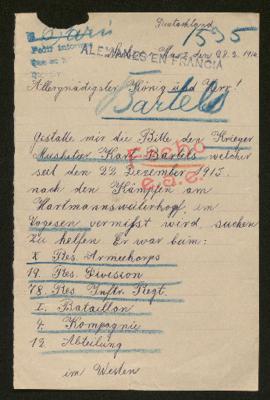 Deutschland
1595
Pedir inform
ALEMANES EN FRANCIA
März, den 28.2.1916
Allergnädigster König und Herr!
Bartels
Gestatte mir die Bitte den Krieger
Musketier Karl Bartels welcher
seit den 22 Dezember 1915.
nach den Kämpfen am
Hartmannsweilerkopf im
Vogesen vermißt wird, suchen
zu helfen. Er war beim:
X Res. Armeekorps
19. Res. Division
78. Res. Inftr. Regt.
I. Bataillon
4. Kompagnie
12. Abteilung
im Westen